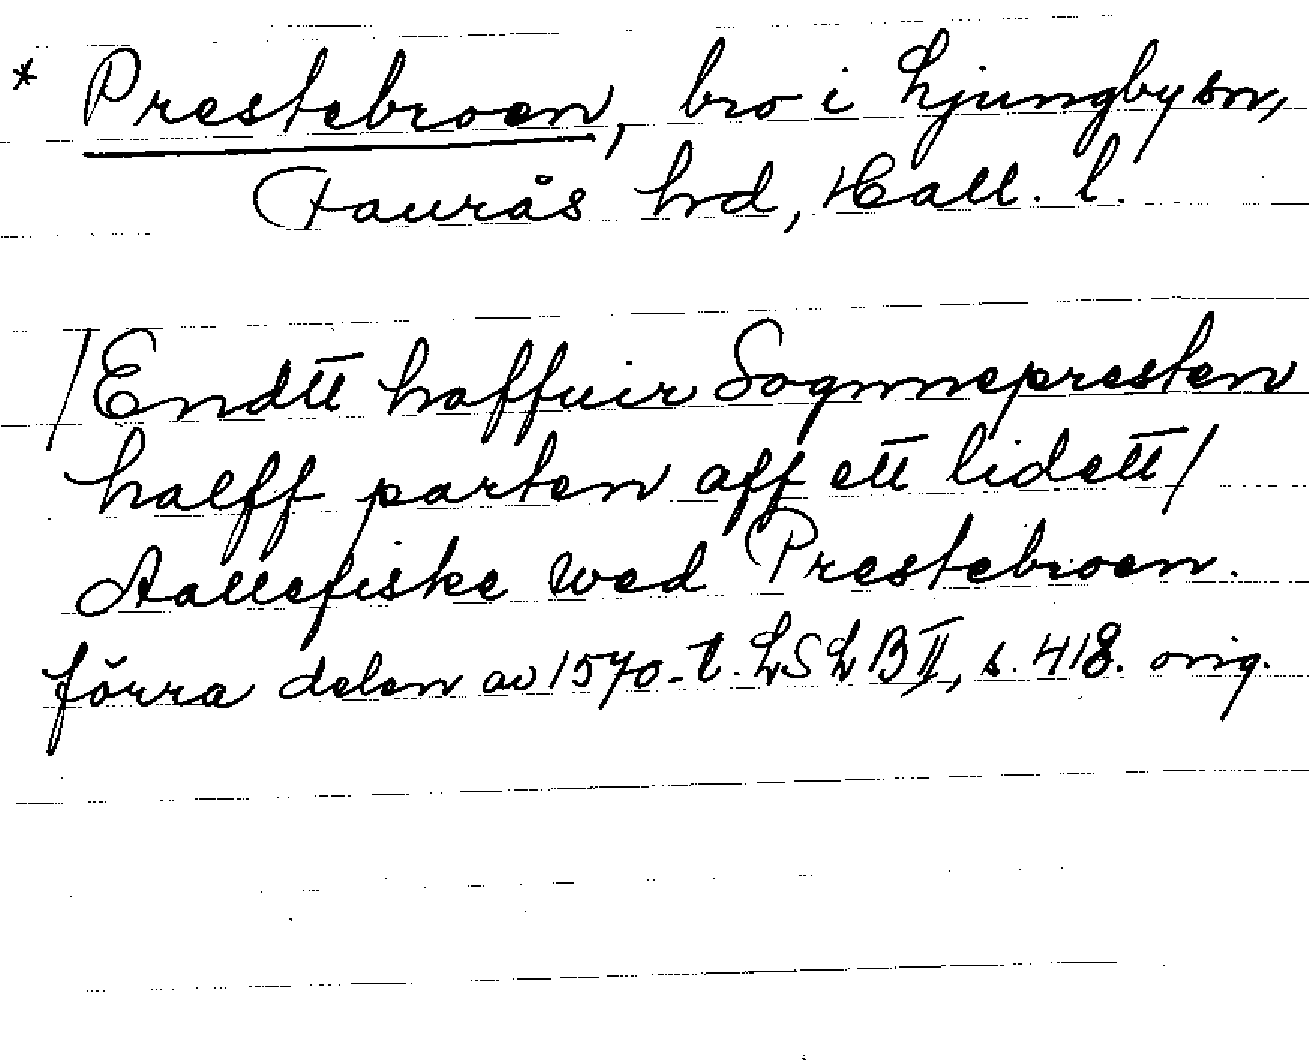 * Prestebroen, bro i Ljungby sn,
Faurås hrd, Hall. l.
/Endtt haffuir Sognnepresten
halff parten aff ett lidett/
Aallefiske wed Prestebroen.
förra delen av 1570-t. LSLB II, s. 418. orig.